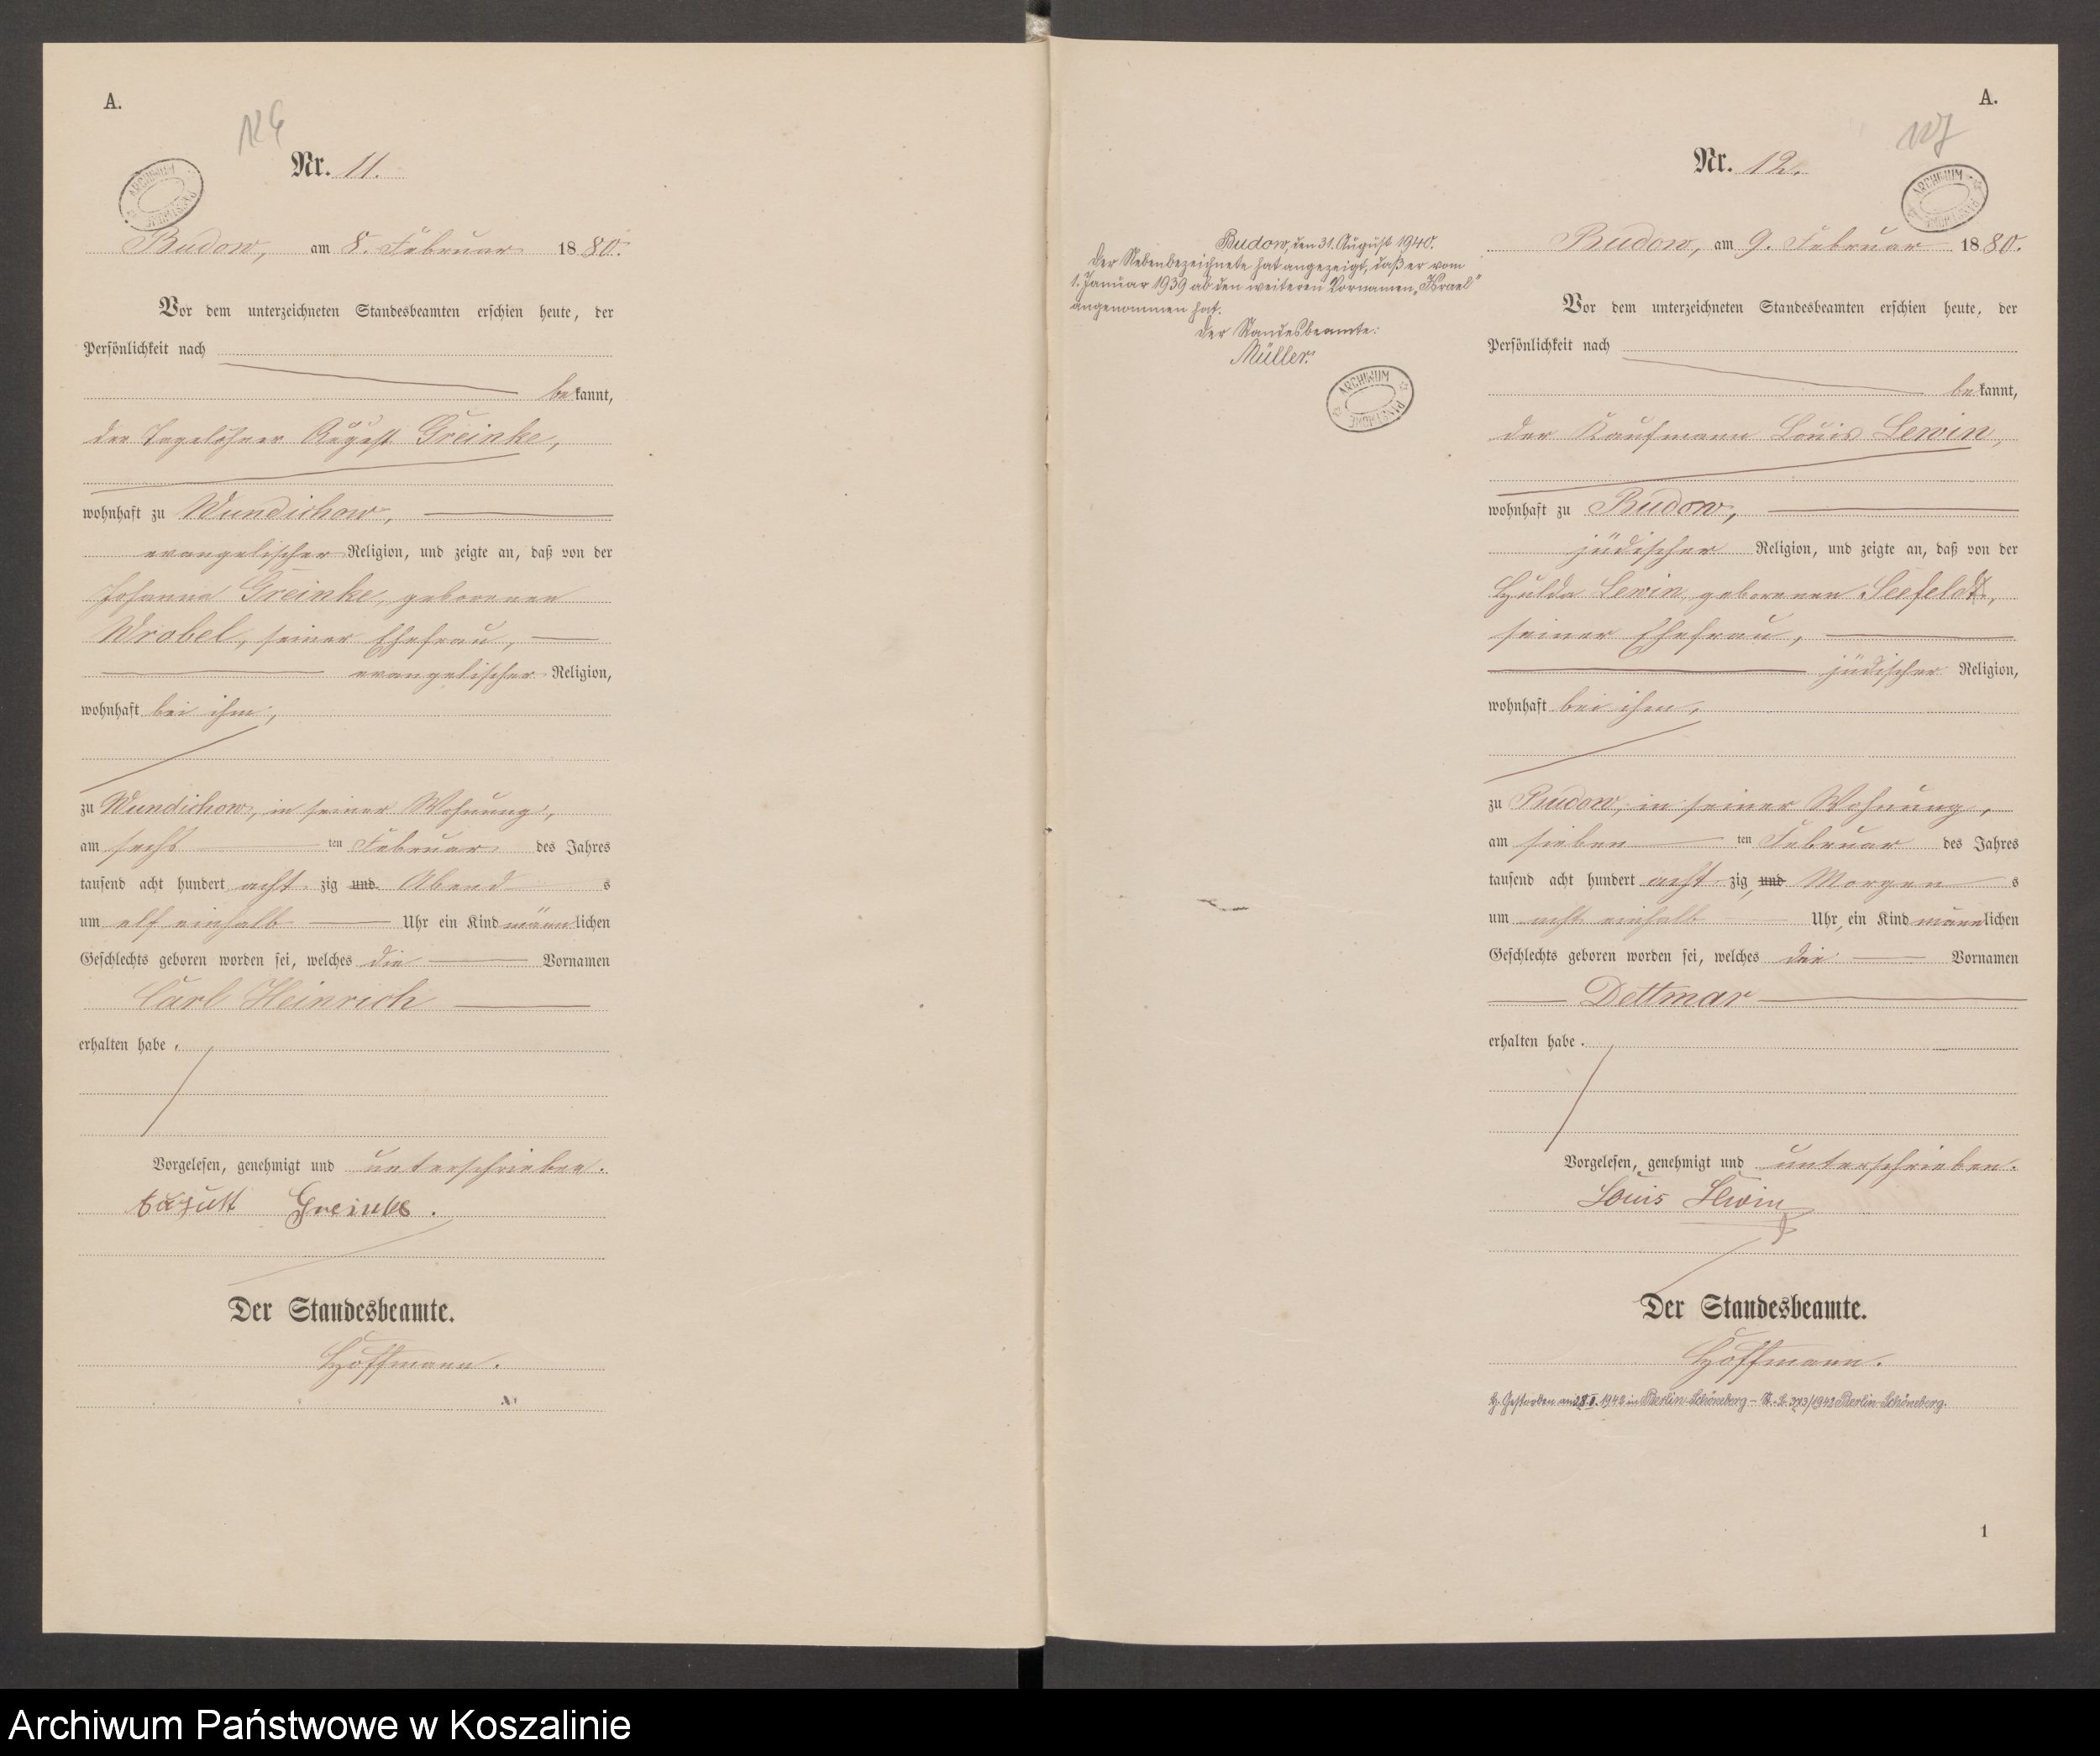 A.
Nr. 11.
ARCHIWUM
Budow, am 8. Februar 1880.
Vor dem unterzeichneten Standesbeamten erschien heute, der
Persönlichkeit nach
bekannt,
der Tagelöhner August Greinke,
wohnhaft zu Wundichow,
evangelischer Religion, und zeigte an, daß von der
Johanna Greinke, geborenen
Wrobel, seiner Ehefrau,
evangelischer Religion,
wohnhaft bei ihm,
zu Wundichow, in seiner Wohnung,
am sechs ten Februar des Jahres
tausend acht hundert acht zig und Abend s
um elf einhalb Uhr ein Kind männlichen
Geschlechts geboren worden sei, welches die Vornamen
Carl Heinrich
erhalten habe.
Vorgelesen, genehmigt und unterschrieben.
August Greinke.
Der Standesbeamte.
Hoffmann.
Budow, den 31. August 1940.
Der Nebenbezeichnete hat angezeigt, daß er vom
1. Januar 1939 ab den weiteren Vornamen „Israel"
angenommen hat.
Der Standesbeamte:
Müller.
ARCHIWUM
A.
127
Nr. 12.
ARCHIWUM
Budow, am 9. Februar 1880.
Vor dem unterzeichneten Standesbeamten erschien heute, der
Persönlichkeit nach
bekannt,
der Kaufmann Louis Lewin,
wohnhaft zu Budow,
jüdischer Religion, und zeigte an, daß von der
Hulda Lewin, geborenen Seefeldt,
seiner Ehefrau,
jüdischer Religion,
wohnhaft bei ihm,
zu Budow, in seiner Wohnung,
am sieben ten Februar des Jahres
tausend acht hundert acht zig, und Morgen s
um acht einhalb Uhr, ein Kind männlichen
Geschlechts geboren worden sei, welches die Vornamen
Dettmar
erhalten habe.
Vorgelesen, genehmigt und unterschrieben.
Louis Lewin
Der Standesbeamte.
Hoffmann.
Gestorben am 1942 in Berlin-Schöneberg - 373/1942 Berlin-Schöneberg.
1
Archiwum Państwowe w Koszalinie